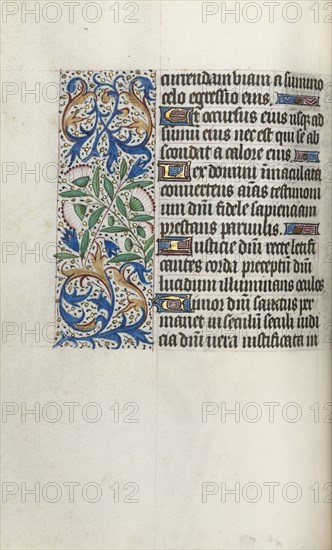 PHOTO 12 PHOTO 12 PHOTO 12
currendam viam a summo
celo egressio eius.
Et occursus eius usq ad
summu eius nec est qui se ab
scondat a calore eius.
Lex domini imaculata
convertens aias testimoni
um dni fidele sapienciam
prestans parvulis.
Iusticie dni recte letifi
cantes corda preceptu dni
lucidum illuminans oculos.
Timor dni sanctus per
manet in seculu seculi iudi
cia dni vera iustificata in
PHOTO 12 PHOTO 12 PHOTO 12